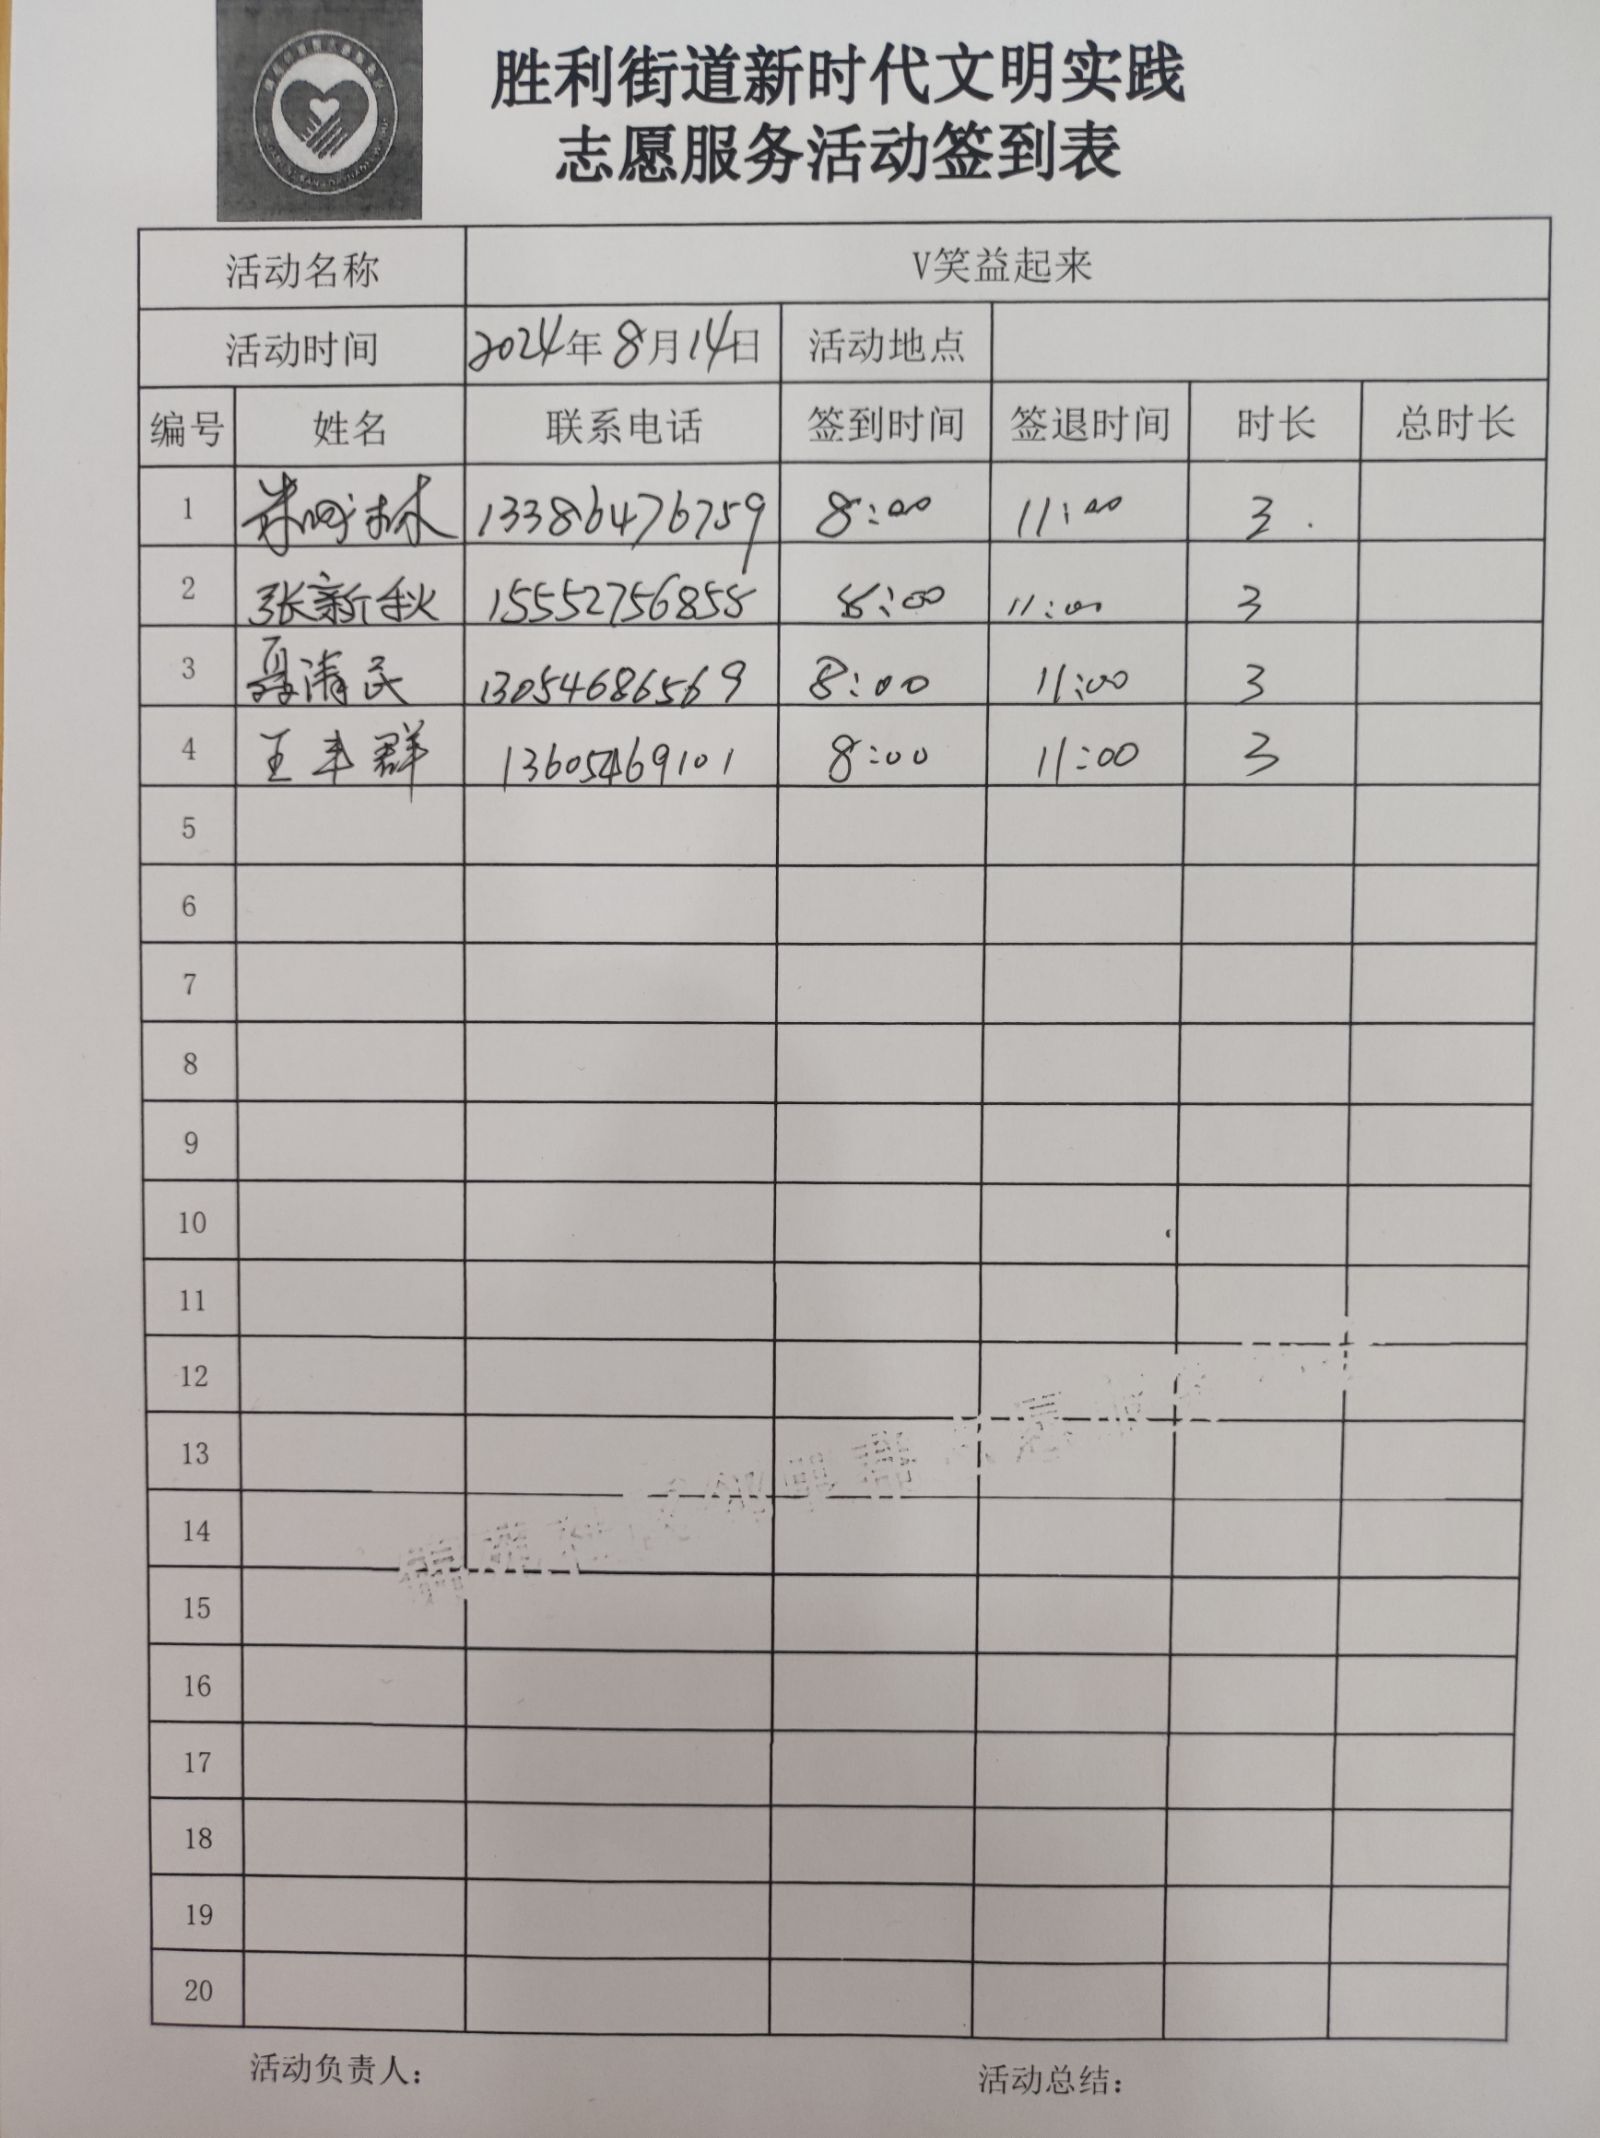 胜利街道新时代文明实践
志愿服务活动签到表
活动名称 V笑益起来
活动时间 2024年8月14日 活动地点
编号 姓名 联系电话 签到时间 签退时间 时长 总时长
1 13386476759 8:00 11:00 3
2 张新秋 15552756858 8:00 11:00 3
3 聂清民 13054686569 8:00 11:00 3
4 王丰群 13605469101 8:00 11:00 3
5
6
7
8
9
10
11
12
13
14
15
16
17
18
19
20
活动负责人: 活动总结: